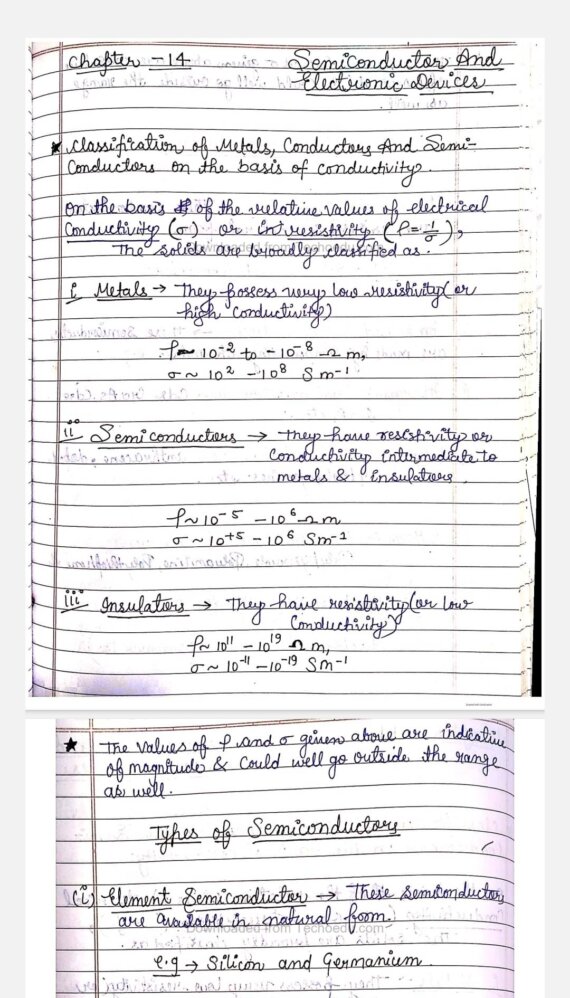 Chapter - 14 Semiconductor And
Electrionic Devices
* Classification of Metals, Conductors And Semi-
Conductors on the basis of conductivity.
on the basis of the relative values of electrical
Conductivity (σ) or in resistivity (ρ = 1/σ),
The solids are broadly classified as.
i Metals → They possess very low resistivity (or
high conductivity)
ρ ~ 10⁻² to - 10⁻⁸ Ω m,
σ ~ 10² - 10⁸ S m⁻¹
ii Semiconductors → They have resistivity or
conductivity intermediate to
metals & insulators
ρ ~ 10⁻⁵ - 10⁶ Ω m
σ ~ 10⁺⁵ - 10⁶ Sm⁻¹
iii Insulators → They have resistivity (or low
Conductivity)
ρ ~ 10¹¹ - 10¹⁹ Ω m,
σ ~ 10⁻¹¹ - 10⁻¹⁹ S m⁻¹
★ The values of ρ and σ given above are indicative
of magnitude & could well go outside the range
as well.
Types of Semiconductors
(i) Element Semiconductor → These semiconductors
are available in natural form.
Downloaded from Techoedu.com
e.g → Silicon and Germanium.